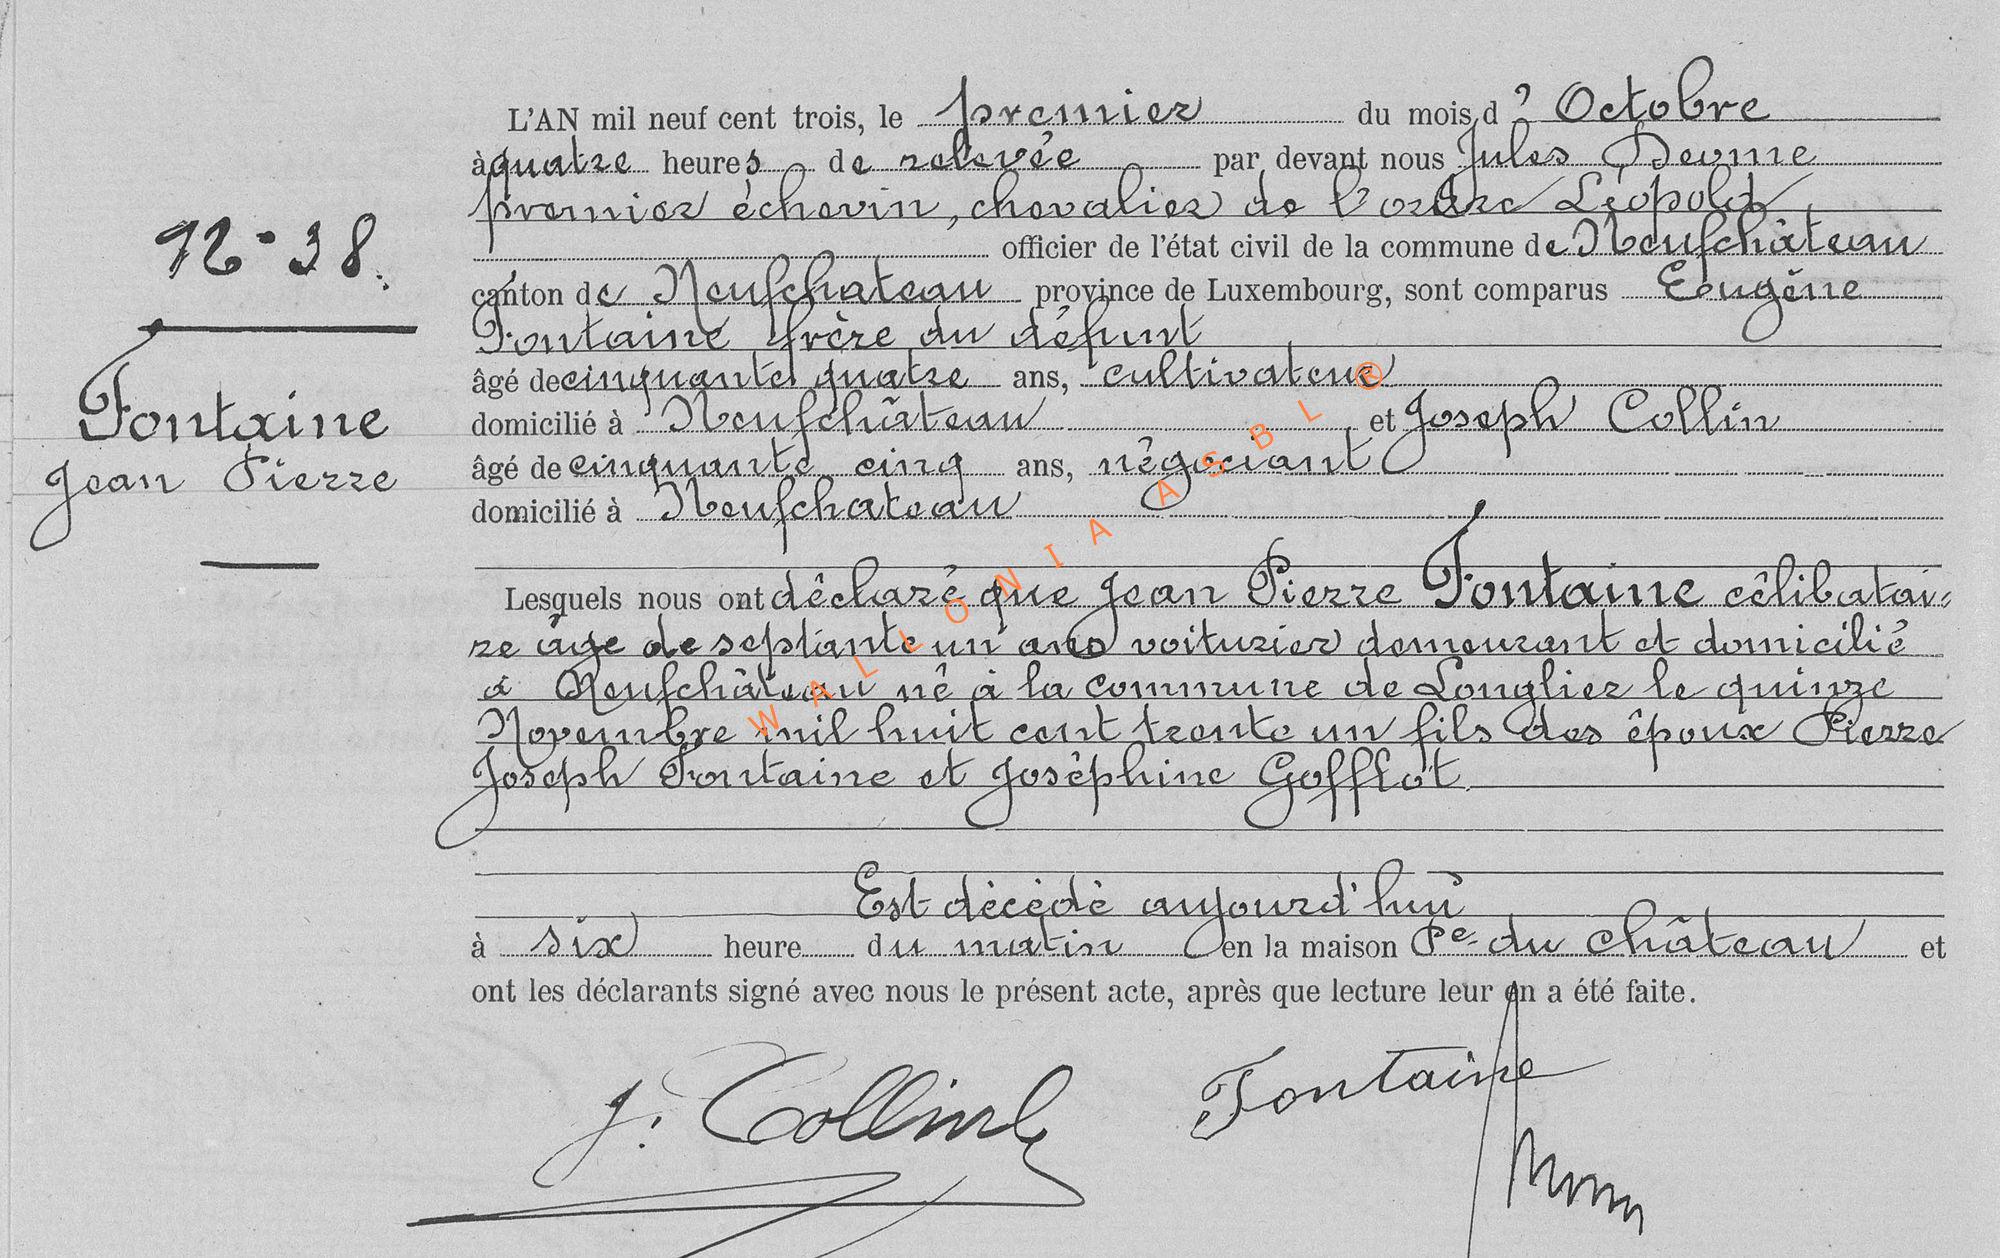 L'AN mil neuf cent trois, le premier du mois d'Octobre
à quatre heures de relevée par devant nous Jules
premier échevin, chevalier de l'ordre Léopold
officier de l'état civil de la commune de Neufchâteau
canton de Neufchateau province de Luxembourg, sont comparus Eugène
Fontaine frère du défunt
âgé de cinquante quatre ans, cultivateur
domicilié à Neufchâteau et Joseph Collin
âgé de cinquante cinq ans, négociant
domicilié à Neufchateau
N° 38.
Fontaine
Jean Pierre
Lesquels nous ont déclaré que Jean Pierre Fontaine célibatai-
re âge de septante un ans voiturier demeurant et domicilié
à Neufchâteau né à la commune de Longlier le quinze
Novembre mil huit cent trente un fils des époux Pierre
Joseph Fontaine et Joséphine Goffiot
Est décédé aujourd'hui
à six heure du matin en la maison Pce du château et
ont les déclarants signé avec nous le présent acte, après que lecture leur en a été faite.
J. Collin
Fontaine
WALLONIA ASBL ®